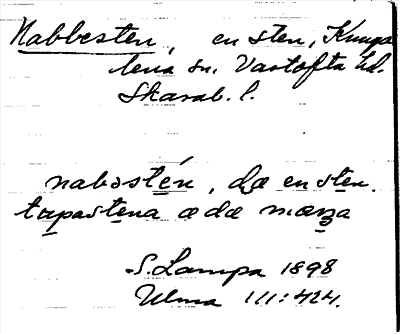 Nabbesten, en sten, Kunga
lena sn. Vartofta hd.
Skarab. l.
nabəstén, dæ en sten.
təpastena æ dæ mæŋa
S. Lampa 1898
Ulma 111:424.